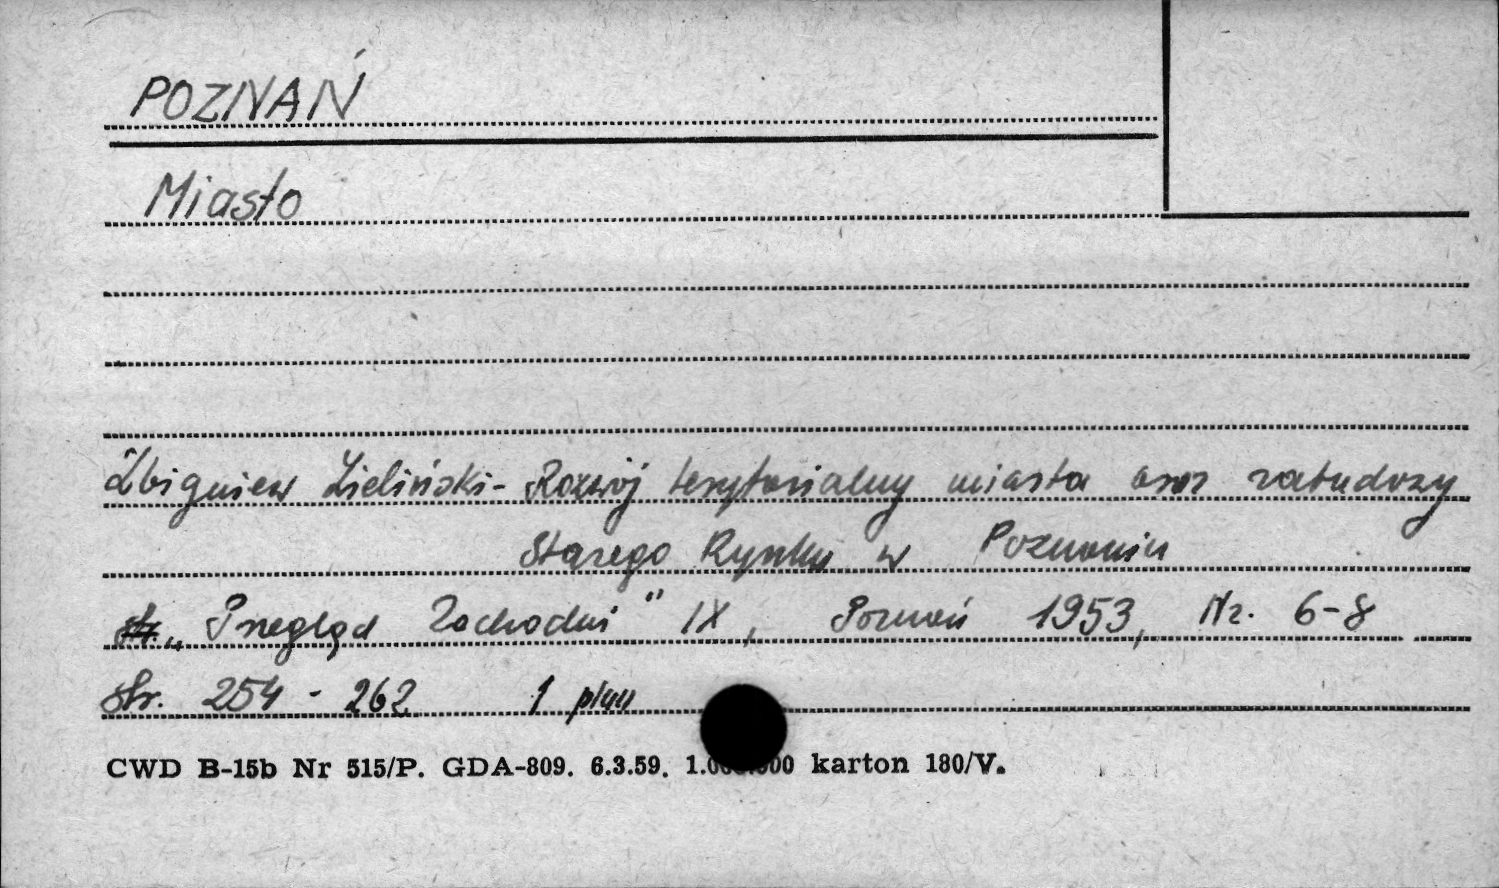 POZNAŃ
Miasto
Zbigniew Zieliński - Rozwój terytorialny miasta oraz zabudowy
Starego Rynku w Poznaniu
"Przegląd Zachodni" IX, Poznań 1953, Nr. 6-8
str. 254 - 262 1 plan
CWD B-15b Nr 515/P. GDA-809. 6.3.59. karton 180/V.